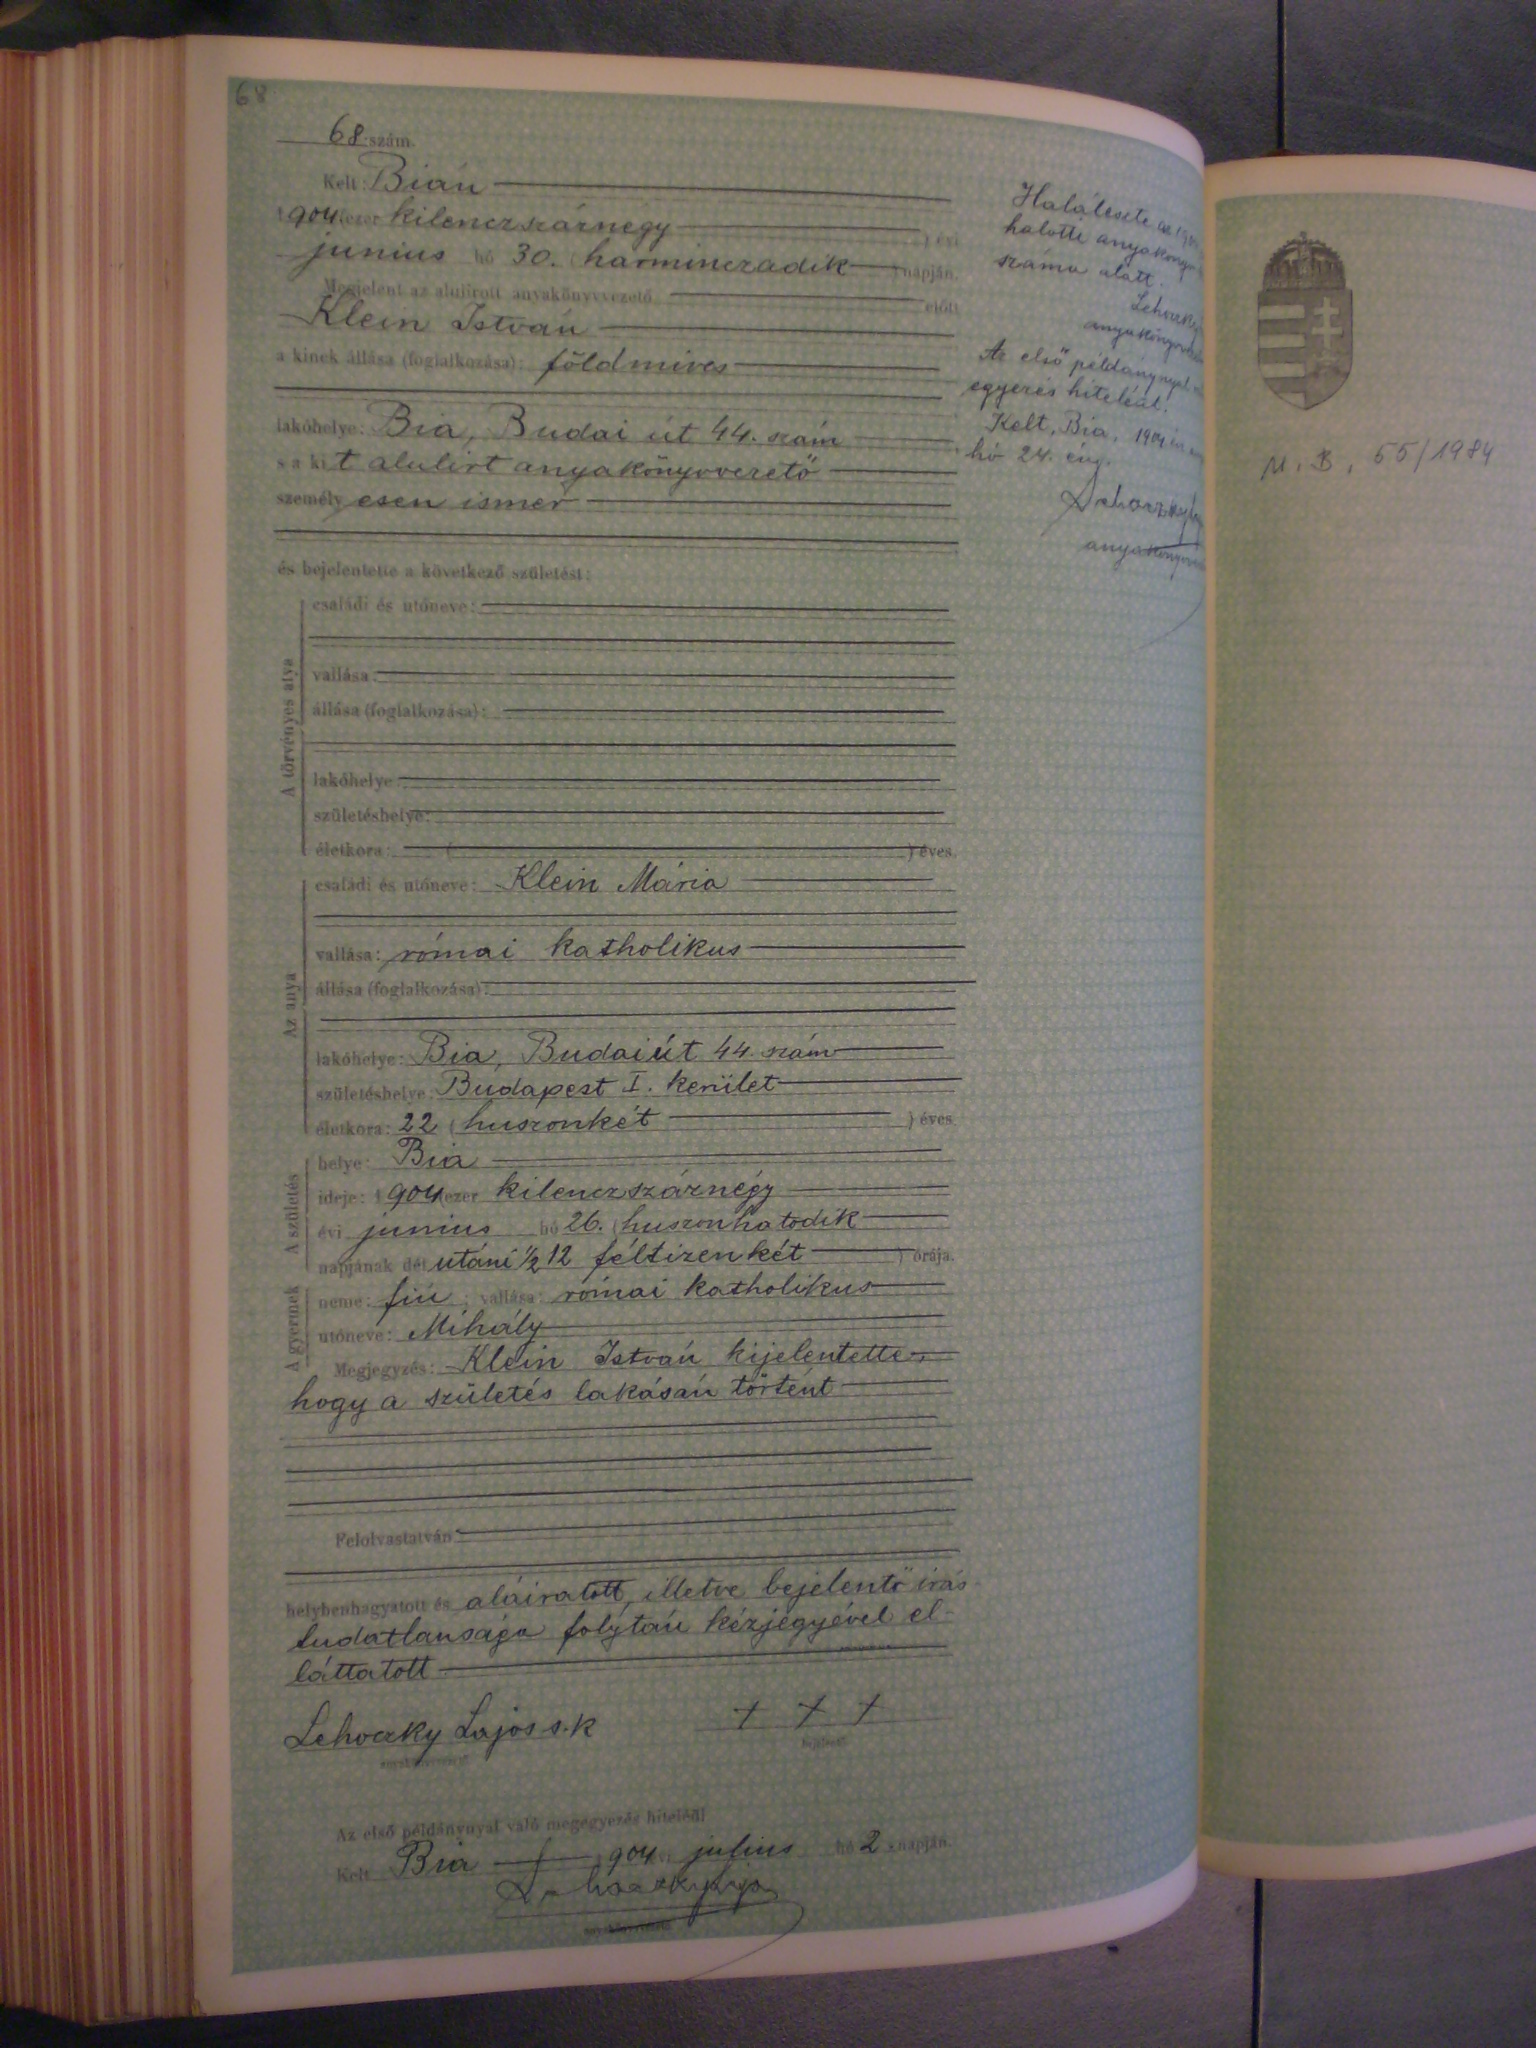 68
68 szám.
Kelt: Bián
1904 ezer kilenczszáznégy ) évi
junius hó 30. ( harminczadik ) napján.
Megjelent az alulirott anyakönyvvezető előtt
Klein István
a kinek állása (foglalkozása): földmives
lakóhelye: Bia, Budai út 44. szám
s a kit alulirt anyakönyvvezető
személyesen ismer
és bejelentette a következő születést:
A törvényes atya
családi és utóneve:
vallása:
állása (foglalkozása):
lakóhelye:
születéshelye:
életkora: ( ) éves.
Az anya
családi és utóneve: Klein Mária
vallása: római katholikus
állása (foglalkozása):
lakóhelye: Bia, Budai út 44. szám
születéshelye: Budapest I. kerület
életkora: 22 ( huszonkét ) éves
A születés
helye: Bia
ideje: 1904 ezer kilenczszáznégy
évi junius hó 26. ( huszonhatodik
napjának dél utáni ½ 12 féltizenkét ) órája.
A gyermek
neme: fiú ; vallása: római katholikus
utóneve: Mihály
Megjegyzés: Klein István kijelentette,
hogy a születés lakásán történt
Felolvastatván
helybenhagyatott és aláiratott, illetve bejelentő irás
tudatlansága folytán kézjegyével el-
láttatott
Lehoczky Lajos s.k + + +
anyakönyvvezető bejelentő
Az első példánynyal való megegyezés hiteléül
Kelt Bia 1904 évi julius hó 2 napján.
Lehoczky Lajos
anyakönyvvezető
Halálesete az
halotti
száma alatt.
Az első példánynyal
egyezés hiteléül.
Kelt, Bia, 1904
hó 24. én.
M. B. 55/1984